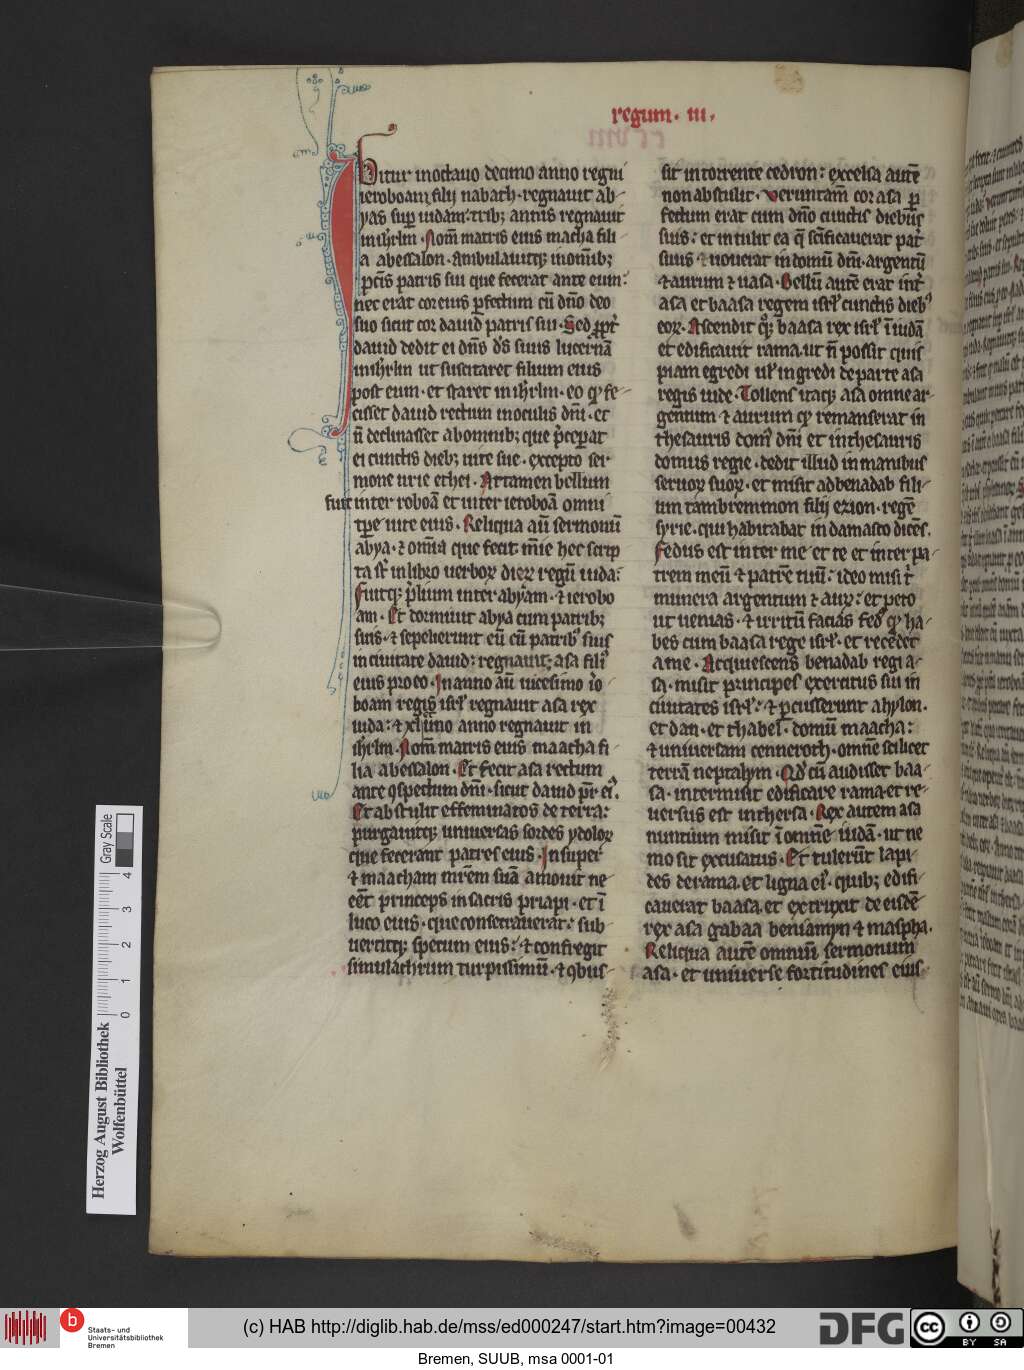 regum · III ·
Igitur in octauo decimo anno regni
ieroboam filij nabath · regnauit ab-
yas sup iudam: trib; annis regnauit
in ihrlm · Nom matris eius macha fili-
a abessalon · Ambulauitq; in omnib;
pctis patris sui que fecerat ante eum:
nec erat cor eius pfectum cū dno deo
suo sicut cor dauid patris sui · Sed ppt
dauid dedit ei dns ds suus lucernā
in ihrlm ut suscitaret filium eius
post eum · et staret in ihrlm · eo qp fe-
cisset dauid rectum in oculis dni · et
ñ declinasset ab omnib; que pceperat
ei cunctis dieb; uite sue · excepto ser-
mone urie ethei · Attamen bellum
fuit inter roboā et inter ieroboā omni
tpe uite eius · Reliqua aū sermonū
abya · ⁊ omnia que fecit nnie hec scrip
ta st in libro uerbor dier regū iuda:
Fuitq; plium inter abyam · ⁊ ierobo
am · Et dormiuit abya cum patrib;
suis · ⁊ sepelierunt eū cū patrib suis
in ciuitate dauid: regnauit; asa fili
eius pro eo · In anno aū uicesimo io
boam regis isrl regnauit asa rex
iuda: ⁊ xl uno anno regnauit in
ihrlm · Nom matris eius maacha fi-
lia abessalon · Et fecit asa rectum
ante 9spectum dni · sicut dauid pr ei9
Et abstulit effeminatos de terra:
purgauitq; uniuersas sordes ydolor
que fecerant patres eius · Insuper
⁊ maacham mrem suā amouit ne-
eēt princeps in sacris priapi · et ī
luco eius · que consecrauerat: sub-
uertitq; specum eius: ⁊ confregit
simulachrum turpissimū · ⁊ 9bus-
sit in torrente cedron: excelsa autē
non abstulit · Veruntam cor asa p
fectum erat cum dno cunctis diebus
suis: et intulit ea q scificauerat pat
suus ⁊ uouerat in domū dni · argentū
⁊ aurum ⁊ uasa · Bellū autē erat int
asa et baasa regem isrl cunctis dieb9
eor · Ascendit qq baasa rex isrl ī iudā
et edificauit rama · ut ñ possit quis
piam egredi ul ingredi de parte asa
regis iude · Tollens itaq; asa omne ar-
gentum ⁊ aurum qp remanserat in
thesauris dom dni et in thesauris
domus regie · dedit illud in manibus
seruor suor · et misit ad benadab fili-
um tambremmon filij ezion · regē
syrie · qui habitabat in damasco dicēs ·
Fedus est inter me et te et inter pa-
trem meū ⁊ patrē tuū: ideo misi t
munera argentum ⁊ aur: et peto
ut uenias · ⁊ irritū facias fed9 qp ha-
bes cum baasa rege isrl · et recedet
a me · Acquiescens benadab regi a-
sa · misit principes exercitus sui in
ciuitates isrl: ⁊ pcusserunt ahylon ·
et dan · et thabel · domū maacha:
⁊ uniuersam cenneroth · omnē scilicet
terrā neptalym · Qd cū audisset baa-
sa · intermisit edificare rama · et re-
uersus est in thersa · Rex autem asa
nuntium misit ī omnē iudā · ut ne
mo sit excusatus · Et tulerūt lapi-
des de rama · et ligna ei9 · quib; edifi-
cauerat baasa · et extruxit de eisdē
rex asa gabaa beniamyn ⁊ maspha ·
Reliqua autē omnium sermonum
asa · et uniuerse fortitudines eius
Gray Scale
4
3
2
1
0
Herzog August Bibliothek
Wolfenbüttel
b
Staats- und
Universitätsbibliothek
Bremen
(c) HAB http://diglib.hab.de/mss/ed000247/start.htm?image=00432
DFG
cc
BY SA
Bremen, SUUB, msa 0001-01